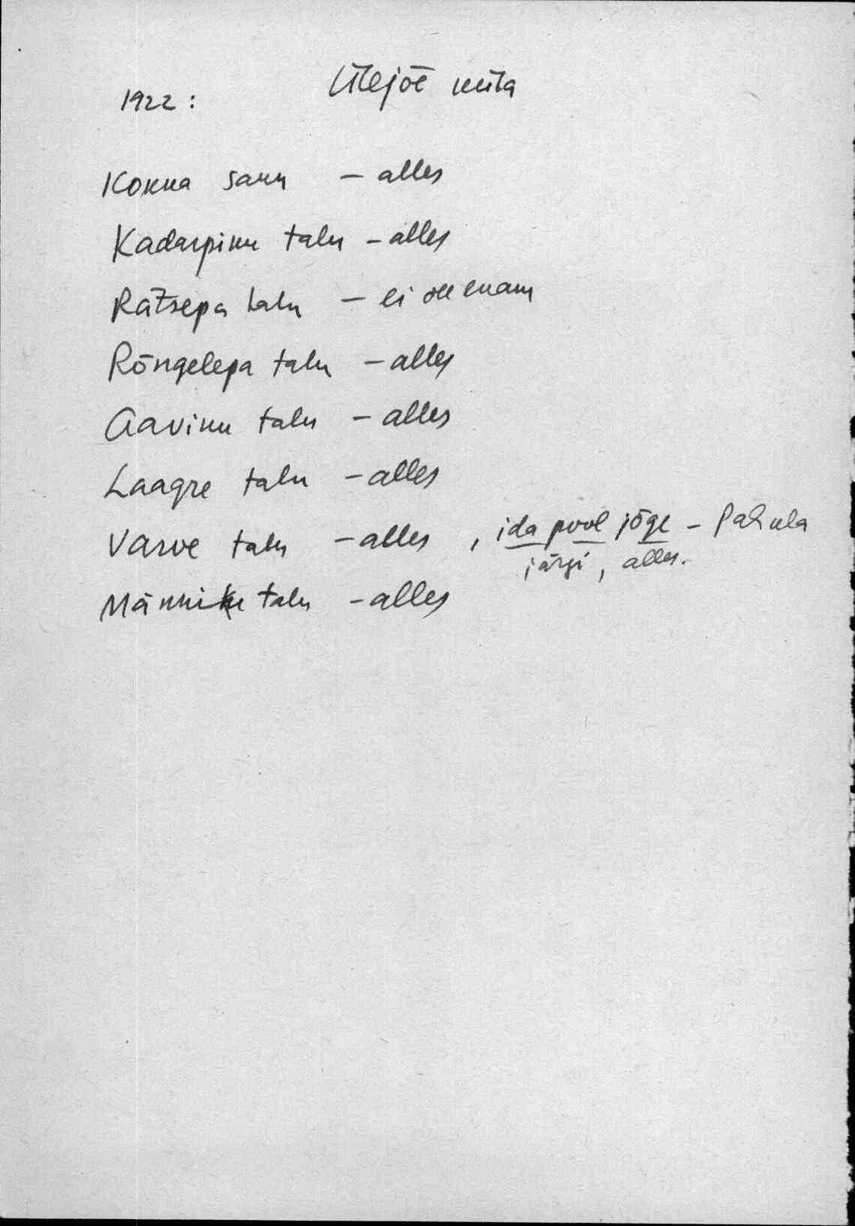 Ülejõe küla
1922 :
Kokna saun – alles
Kadarpiku talu – alles
Rätsepa talu – ei ole enam
Rõngelepa talu – alles
Aaviku talu – alles
Laagre talu – alles
Varve talu – alles , ida pool jõge – Pahula
järgi, alles.
Männiku talu – alles